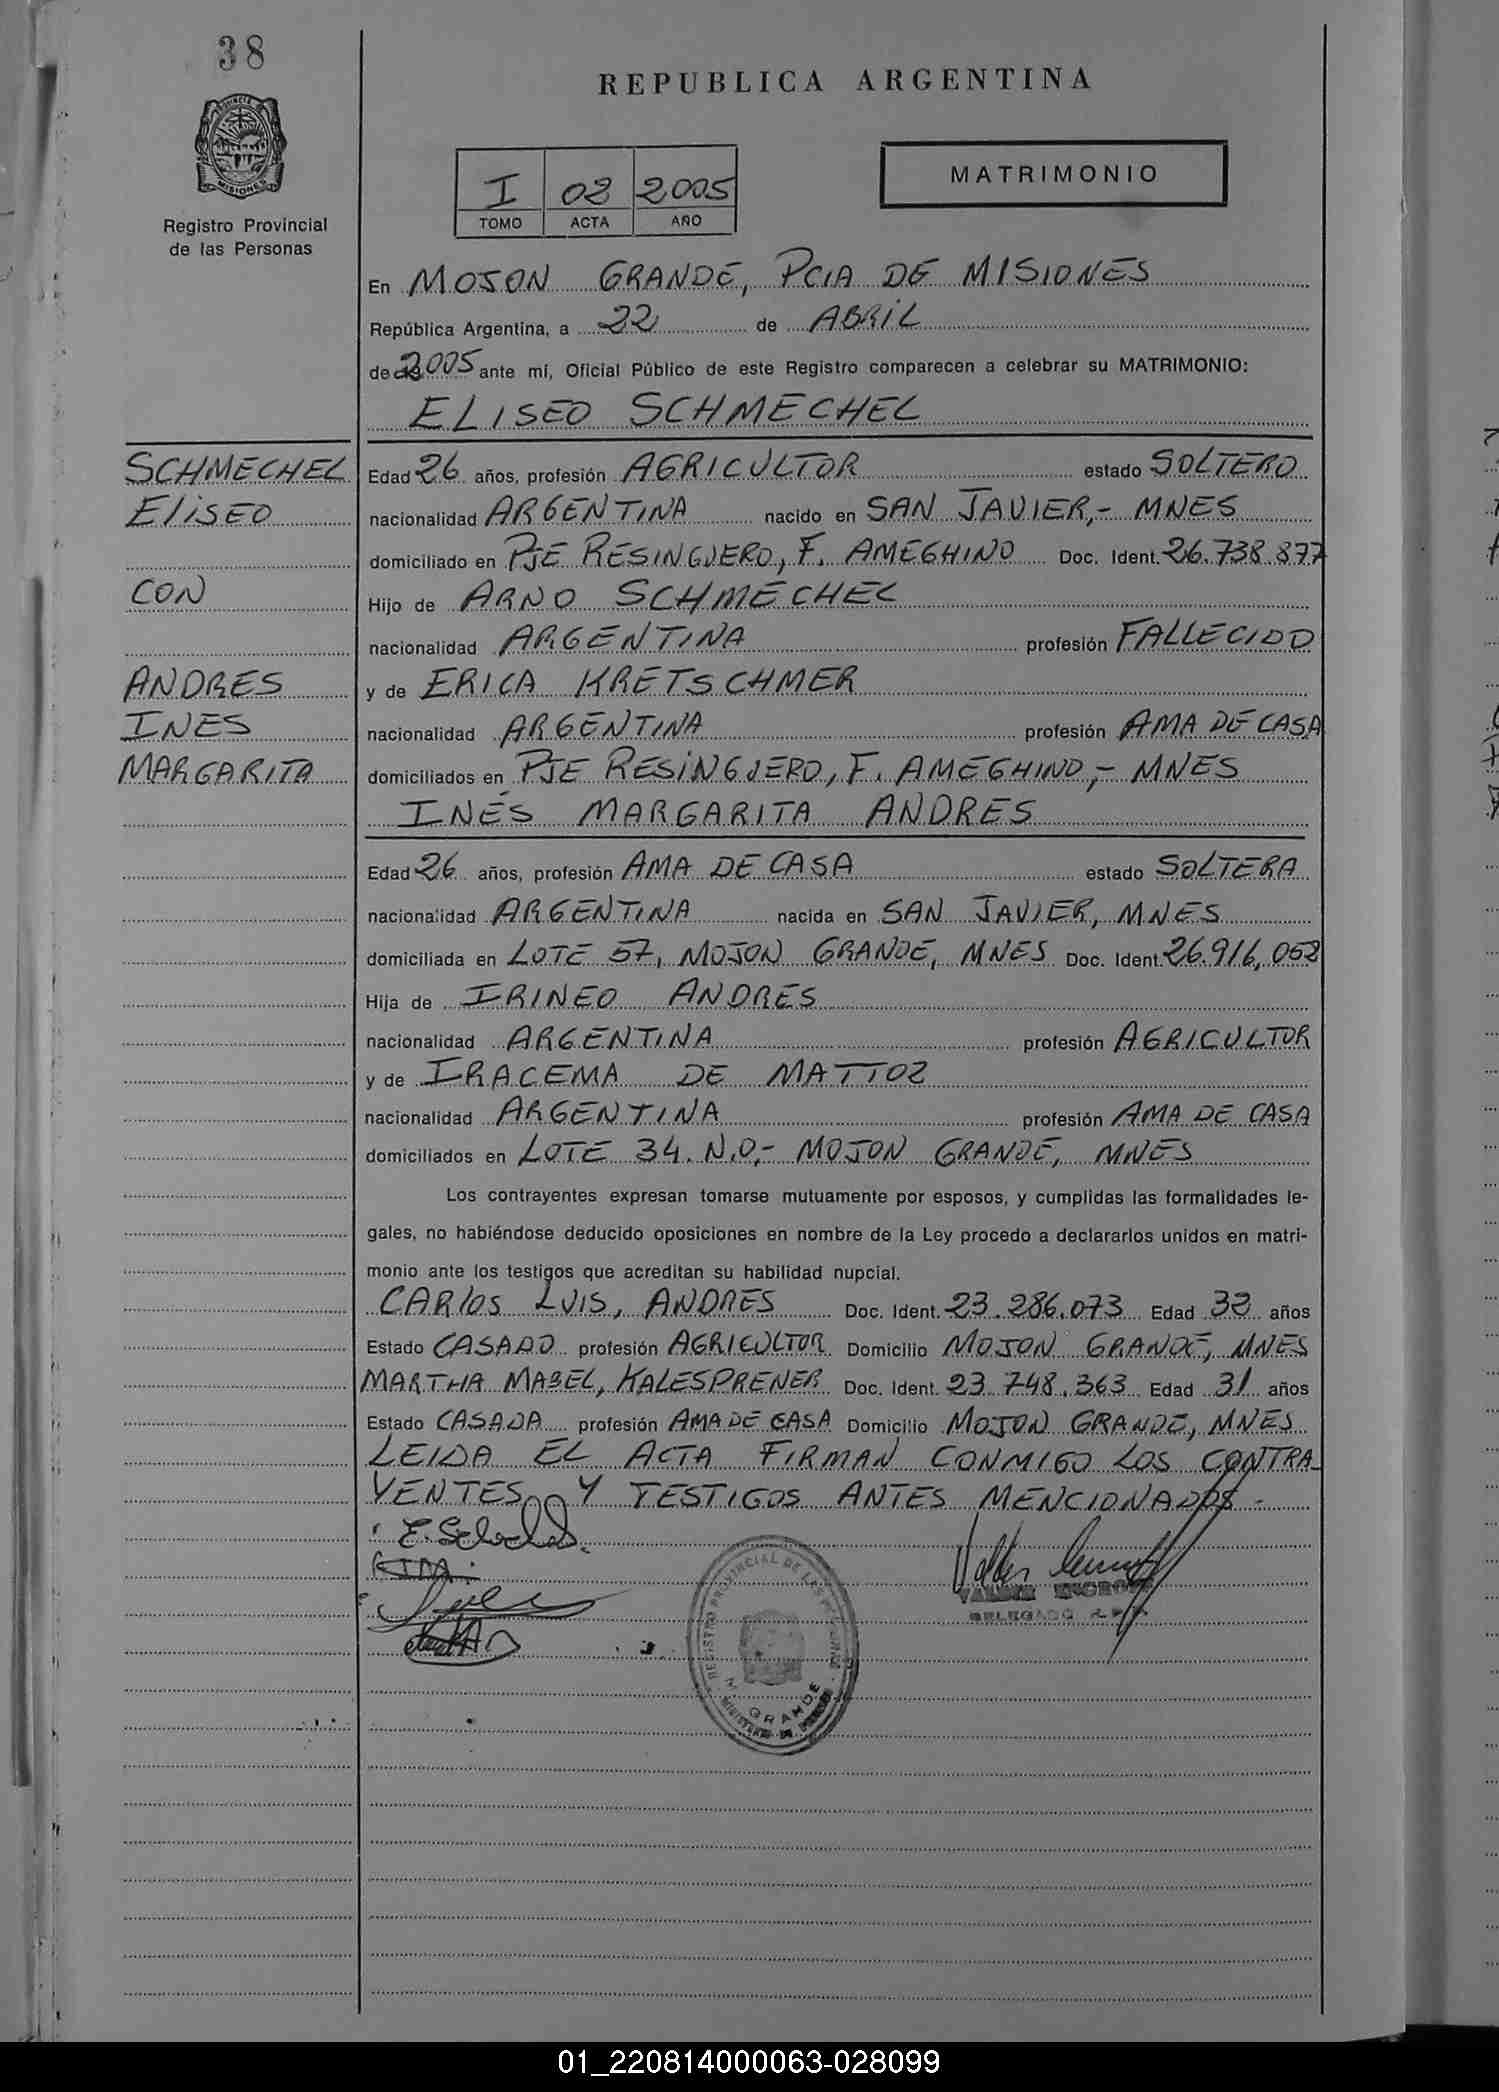 38
REPUBLICA ARGENTINA
PROVINCIA DE
MISIONES
Registro Provincial
de las Personas
I 02 2005
TOMO ACTA AÑO
MATRIMONIO
En MOJON GRANDE, PCIA DE MISIONES
República Argentina, a 22 de ABRIL
de 2005 ante mí, Oficial Público de este Registro comparecen a celebrar su MATRIMONIO:
ELISEO SCHMECHEL
SCHMECHEL
ELISEO
CON
ANDRES
INES
MARGARITA
Edad 26 años, profesión AGRICULTOR estado SOLTERO
nacionalidad ARGENTINA nacido en SAN JAVIER,- MNES
domiciliado en PJE RESINGUERO, F. AMEGHINO Doc. Ident. 26.738.877
Hijo de ARNO SCHMECHEL
nacionalidad ARGENTINA profesión FALLECIDO
y de ERICA KRETSCHMER
nacionalidad ARGENTINA profesión AMA DE CASA
domiciliados en PJE RESINGUERO, F. AMEGHINO,- MNES
INES MARGARITA ANDRES
Edad 26 años, profesión AMA DE CASA estado SOLTERA
nacionalidad ARGENTINA nacida en SAN JAVIER, MNES
domiciliada en LOTE 57, MOJON GRANDE, MNES Doc. Ident. 26.916,052
Hija de IRINEO ANDRES
nacionalidad ARGENTINA profesión AGRICULTOR
y de IRACEMA DE MATTOZ
nacionalidad ARGENTINA profesión AMA DE CASA
domiciliados en LOTE 34. N.O,- MOJON GRANDE, MNES
Los contrayentes expresan tomarse mutuamente por esposos, y cumplidas las formalidades le-
gales, no habiéndose deducido oposiciones en nombre de la Ley procedo a declararlos unidos en matri-
monio ante los testigos que acreditan su habilidad nupcial.
CARLOS LUIS, ANDRES Doc. Ident. 23.286.073 Edad 32 años
Estado CASADO profesión AGRICULTOR Domicilio MOJON GRANDE, MNES
MARTHA MABEL, KALESPRENER Doc. Ident. 23.748.363 Edad 31 años
Estado CASADA profesión AMA DE CASA Domicilio MOJON GRANDE, MNES
LEIDA EL ACTA FIRMAN CONMIGO LOS CONTRA_
YENTES Y TESTIGOS ANTES MENCIONADOS -
REGISTRO PROVINCIAL DE LAS PERSONAS
M. GRANDE
DELEGADO
01_220814000063-028099